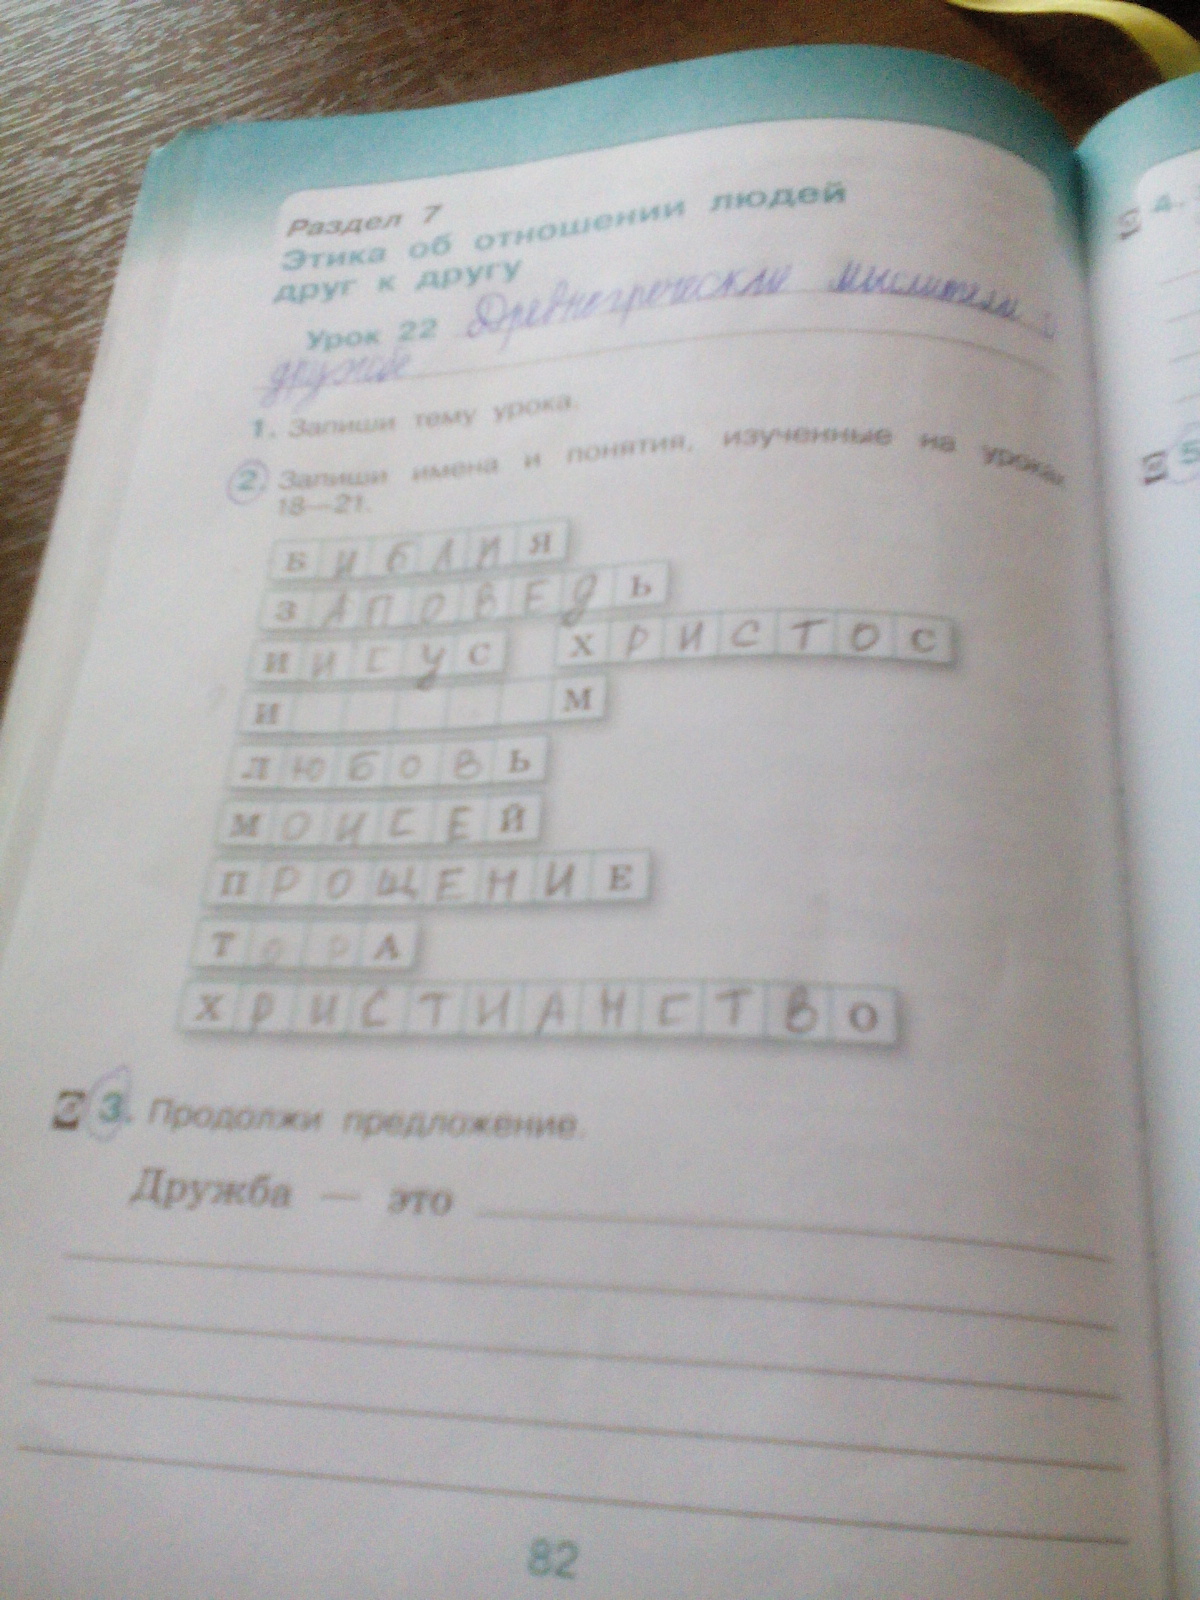 Раздел 7
Этика об отношении людей
друг к другу
Урок 22 Древнегреческие мыслители о
дружбе
1. Запиши тему урока.
2. Запиши имена и понятия, изученные на уроках
18—21.
БИБЛИЯ
ЗАПОВЕДЬ
ИИСУС ХРИСТОС
И М
ЛЮБОВЬ
МОИСЕЙ
ПРОЩЕНИЕ
ТОРА
ХРИСТИАНСТВО
3. Продолжи предложение.
Дружба — это
82
4.
5